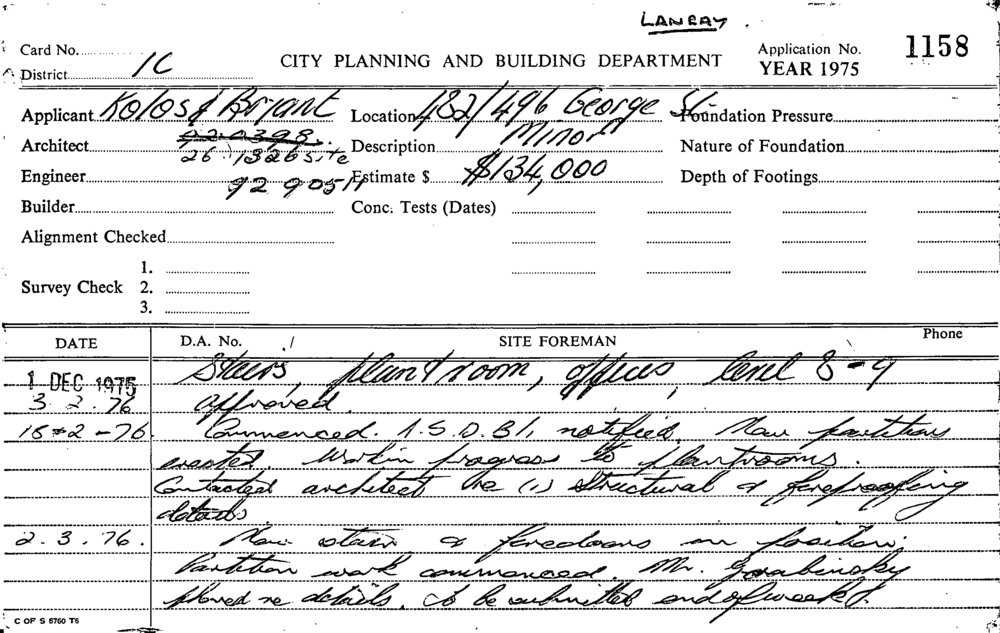 LANRAY.
Card No. Application No. 1158
District 1C CITY PLANNING AND BUILDING DEPARTMENT YEAR 1975
Applicant Kolos & Bryant Location 482/496 George St Foundation Pressure
Architect 920398. Description Minor Nature of Foundation
26 1326 Site
Engineer 92 9051 Estimate $ $134,000 Depth of Footings
Builder Conc. Tests (Dates)
Alignment Checked
1.
Survey Check 2.
3.
DATE D.A. No. / SITE FOREMAN Phone
1 DEC 1975 Stairs, plant room, offices, level 8-9
3.2.76 approved.
18-2-76 Commenced. notified. New partitions
erected. Work in progress to plantrooms.
Contacted architect re (1) Structural & fireproofing
details
2.3.76. New stairs & firedoors in position.
Partition work commenced. Mr.
phoned re details. to be submitted end of week.
C OF S 5760 T6